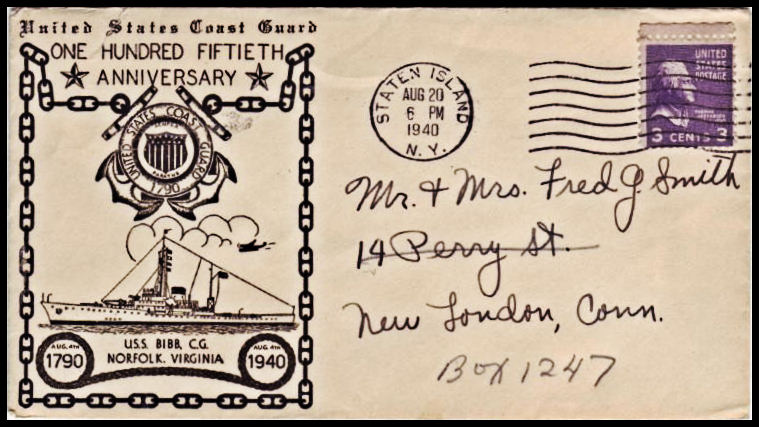 United States Coast Guard
ONE HUNDRED FIFTIETH
ANNIVERSARY
UNITED STATES COAST GUARD
SEMPER
PARATUS
1790
U.S.S. BIBB, C.G.
NORFOLK, VIRGINIA
AUG. 4TH
1790
AUG. 4TH
1940
STATEN ISLAND
AUG 20
6 PM
1940
N. Y.
UNITED
STATES
POSTAGE
3 CENTS 3
Mr. & Mrs. Fred J Smith
14 Perry St.
New London, Conn.
BOX 1247